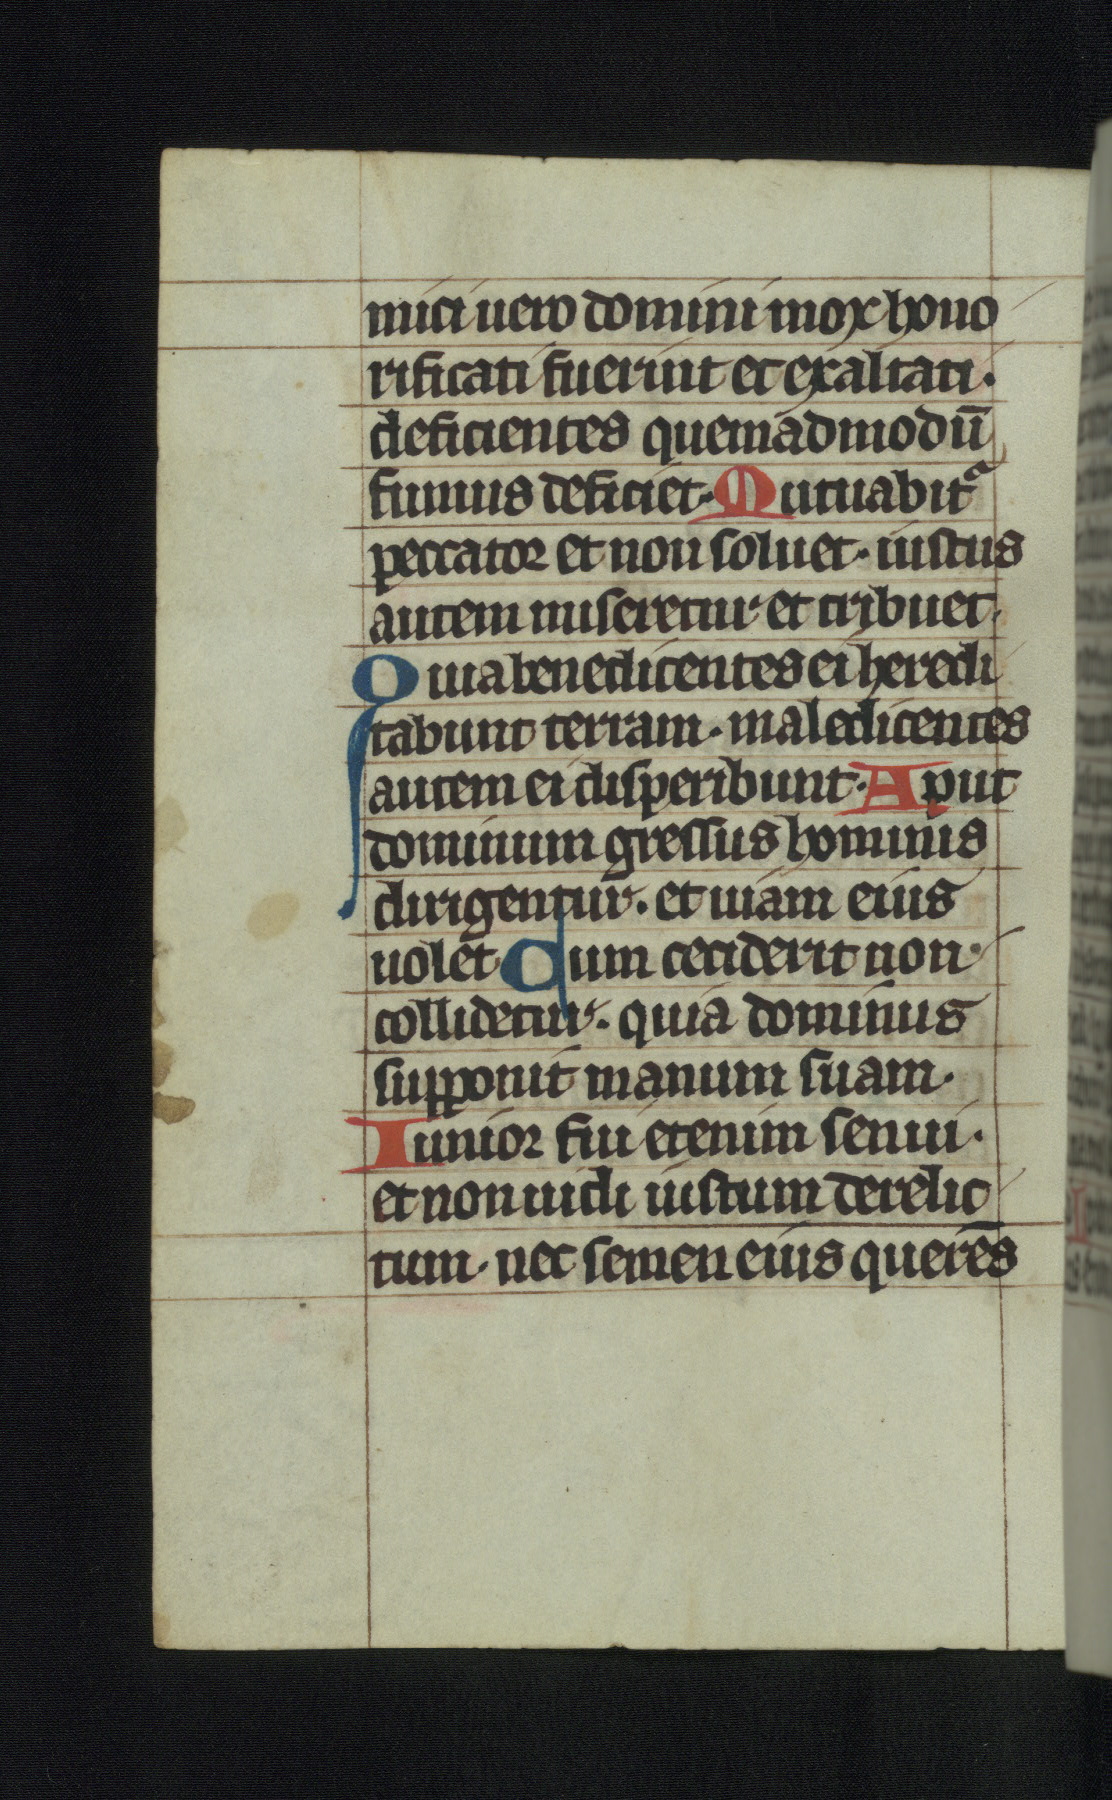 mici uero domini mox hono
rificati fuerint et exaltati.
deficientes quemadmodū
fumus deficiet. Mutuabit᷑
peccator et non soluet. iustus
autem miseretur et tribuet.
Quia benedicentes ei heredi
tabunt terram. maledicentes
autem ei disperibunt. Aput
dominum gressus hominis
dirigentur. et uiam eius
uolet. Cum ceciderit non
collidetur. quia dominus
supponit manum suam.
Iunior fui etenim senui.
et non uidi iustum derelic
tum. nec semen eius querēs